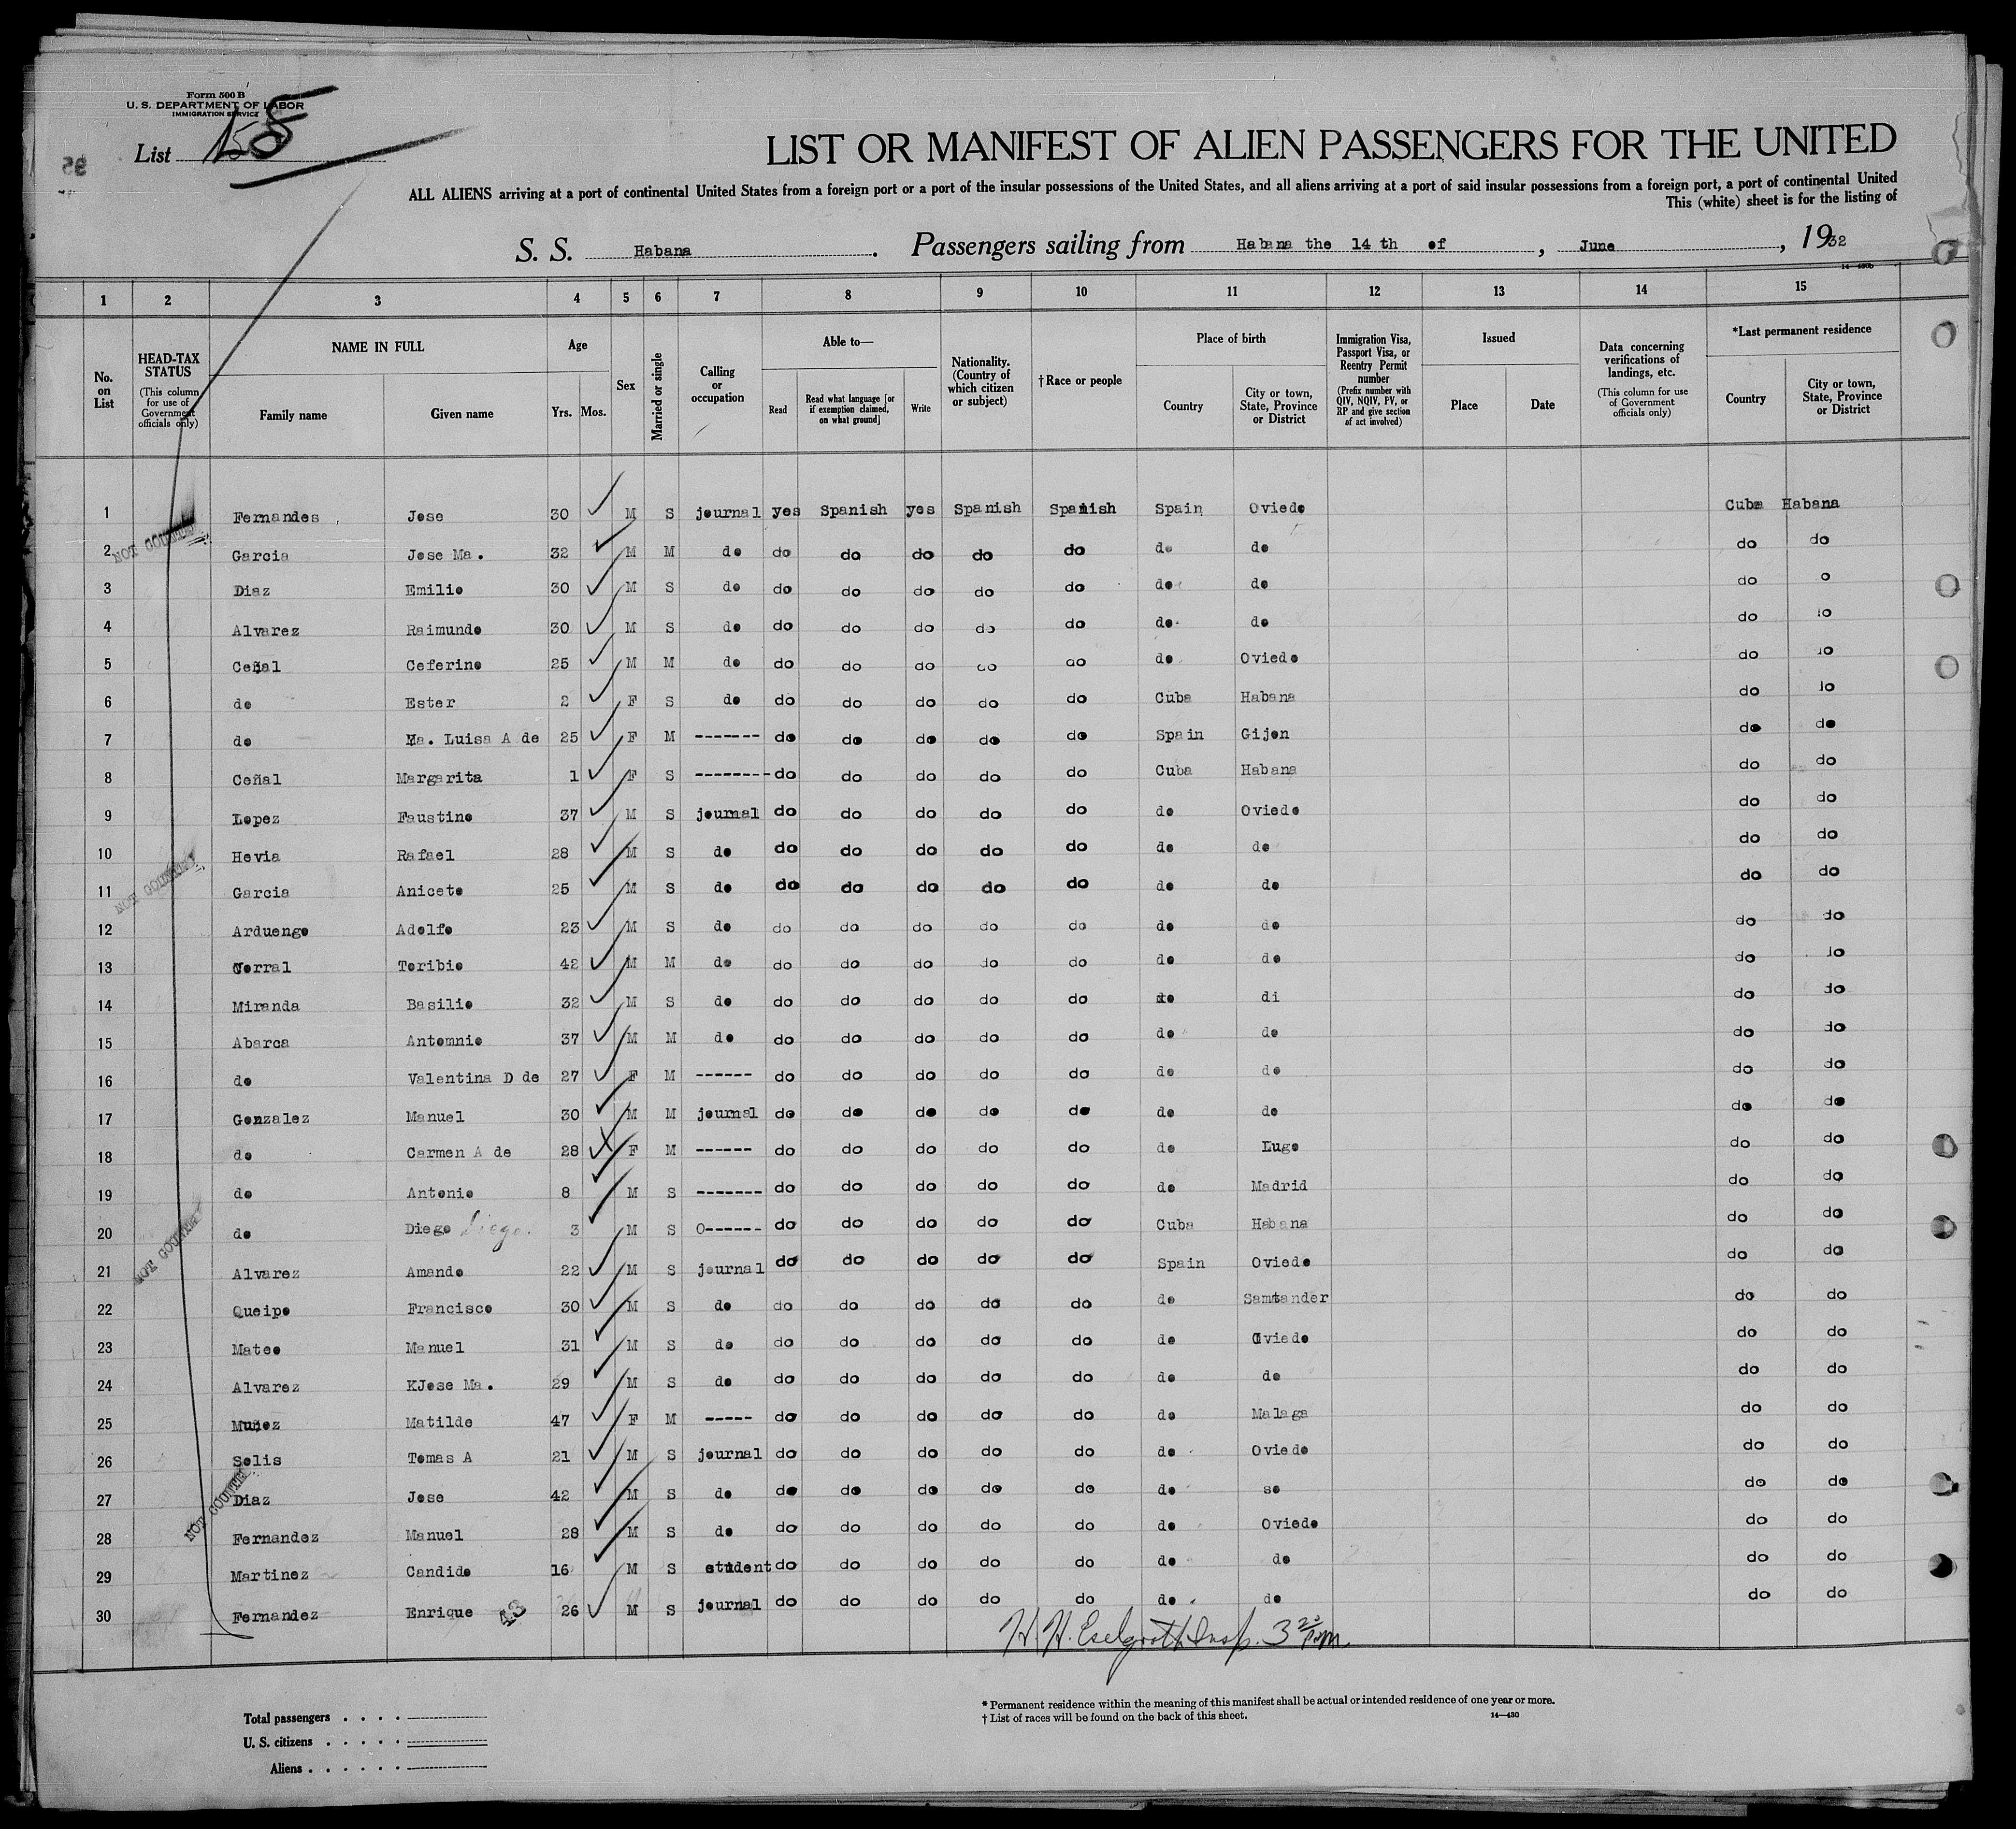 Form 500 B
U. S. DEPARTMENT OF LABOR
IMMIGRATION SERVICE
List
95
LIST OR MANIFEST OF ALIEN PASSENGERS FOR THE UNITED
ALL ALIENS arriving at a port of continental United States from a foreign port or a port of the insular possessions of the United States, and all aliens arriving at a port of said insular possessions from a foreign port, a port of continental United
This (white) sheet is for the listing of
S. S. Habana. Passengers sailing from Habana the 14 th of, June, 1932
14—430b
1 2 3 4 5 6 7 8 9 10 11 12 13 14 15
No. on List
HEAD-TAX STATUS (This column for use of Government officials only)
NAME IN FULL Family name Given name
Age Yrs. Mos.
Sex
Married or single
Calling or occupation
Able to— Read Read what language [or if exemption claimed, on what ground] Write
Nationality. (Country of which citizen or subject)
† Race or people
Place of birth Country City or town, State, Province or District
Immigration Visa, Passport Visa, or Reentry Permit number (Prefix number with QIV, NQIV, PV, or RP and give section of act involved)
Issued Place Date
Data concerning verifications of landings, etc. (This column for use of Government officials only)
*Last permanent residence Country City or town, State, Province or District
1 Fernandes, Jose 30 M S journal yes Spanish yes Spanish Spanish Spain Oviedo Cuba Habana
NOT COUNTED
2 Garcia Jose Ma. 32 M M do do do do do do do do do do
3 Diaz Emilio 30 M S do do do do do do do do do o
4 Alvarez Raimundo 30 M S do do do do do do do do do do
5 Ceñal Ceferino 25 M M do do do do do do do Oviedo do do
6 do Ester 2 F S do do do do do do Cuba Habana do do
7 do Ma. Luisa A de 25 F M ------- do do do do do Spain Gijon do do
8 Ceñal Margarita 1 F S -------- do do do do do Cuba Habana do do
9 Lopez Faustino 37 M S journal do do do do do do Oviedo do do
10 Hevia Rafael 28 M S do do do do do do do do do do
NOT COUNTED
11 Garcia Aniceto 25 M S do do do do do do do do do do
12 Arduengo Adolfo 23 M S do do do do do do do do do do
13 Corral Toribio 42 M M do do do do do do do do do do
14 Miranda Basilio 32 M S do do do do do do do di do do
15 Abarca Antomnio 37 M M do do do do do do do do do do
16 do Valentina D de 27 F M ------ do do do do do do do do do
17 Gonzalez Manuel 30 M M journal do do do do do do do do do
18 do Carmen A de 28 F M ------ do do do do do do Lugo do do
19 do Antonio 8 M S ------- do do do do do do Madrid do do
20 do Diego Diego. 3 M S O------ do do do do do Cuba Habana do do
NOT COUNTED
21 Alvarez Amando 22 M S journal do do do do do Spain Oviedo do do
22 Queipo Francisco 30 M S do do do do do do do Samtander do do
23 Mateo Manuel 31 M S do do do do do do do Oviedo do do
24 Alvarez KJose Ma. 29 M S do do do do do do do do do do
25 Muñez Matilde 47 F M ----- do do do do do do Malaga do do
26 Solis Tomas A 21 M S journal do do do do do do Oviedo do do
27 Diaz Jose 42 M S do do do do do do do so do do
NOT COUNTED
28 Fernandez Manuel 28 M S do do do do do do do Oviedo do do
29 Martinez Candido 16 M S student do do do do do do do do do
30 Fernandez Enrique 43 26 M S journal do do do do do do do do do
Total passengers . . . .
U. S. citizens . . . . .
Aliens . . . . . .
* Permanent residence within the meaning of this manifest shall be actual or intended residence of one year or more.
† List of races will be found on the back of this sheet. 14—430